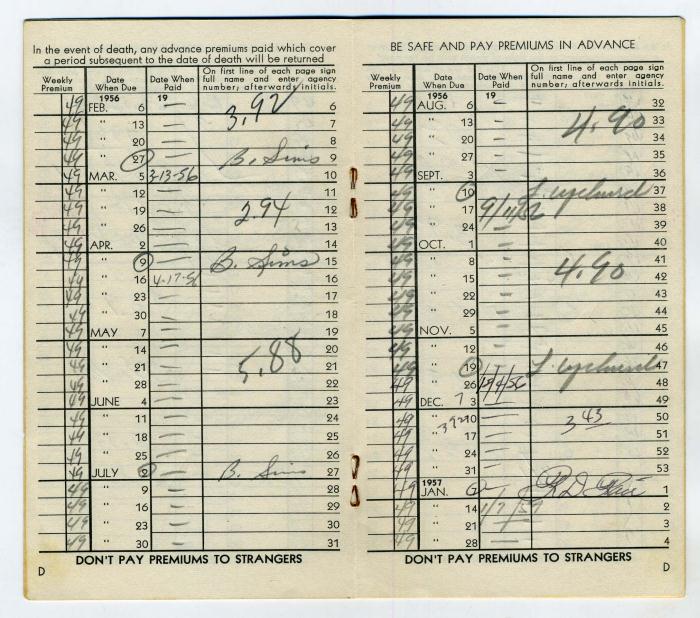 In the event of death, any advance premiums paid which cover
a period subsequent to the date of death will be returned
Weekly Premium Date When Due Date When Paid On first line of each page sign full name and enter agency number; afterwards initials.
1956 19
49 FEB. 6 — 6
49 " 13 — 3.92 7
49 " 20 — 8
49 " 27 — B. Sims 9
49 MAR. 5 3-13-56 10
49 " 12 — 11
49 " 19 — 2.94 12
49 " 26 — 13
49 APR. 2 — 14
49 " 9 — B. Sims 15
49 " 16 4-17-56 16
49 " 23 — 17
49 " 30 — 18
49 MAY 7 — 19
49 " 14 — 20
49 " 21 — 5.88 21
49 " 28 — 22
49 JUNE 4 — 23
49 " 11 — 24
49 " 18 — 25
49 " 25 — 26
49 JULY 2 — B. Sims 27
49 " 9 — 28
49 " 16 — 29
49 " 23 — 30
49 " 30 — 31
DON'T PAY PREMIUMS TO STRANGERS
D
BE SAFE AND PAY PREMIUMS IN ADVANCE
Weekly Premium Date When Due Date When Paid On first line of each page sign full name and enter agency number; afterwards initials.
1956 19
49 AUG. 6 — 32
49 " 13 — 4.90 33
49 " 20 — 34
49 " 27 — 35
49 SEPT. 3 — 36
49 " 10 — 37
49 " 17 38
49 " 24 — 39
49 OCT. 1 — 40
49 " 8 — 41
49 " 15 — 4.90 42
49 " 22 — 43
49 " 29 — 44
49 NOV. 5 — 45
49 " 12 — 46
49 " 19 — 47
49 " 26 48
49 DEC. 3 — 49
49 " 10 3 43 50
49 " 17 — 51
49 " 24 — 52
49 " 31 — 53
1957
49 JAN. — 1
49 " 14 2
49 " 21 — 3
49 " 28 — 4
DON'T PAY PREMIUMS TO STRANGERS
D